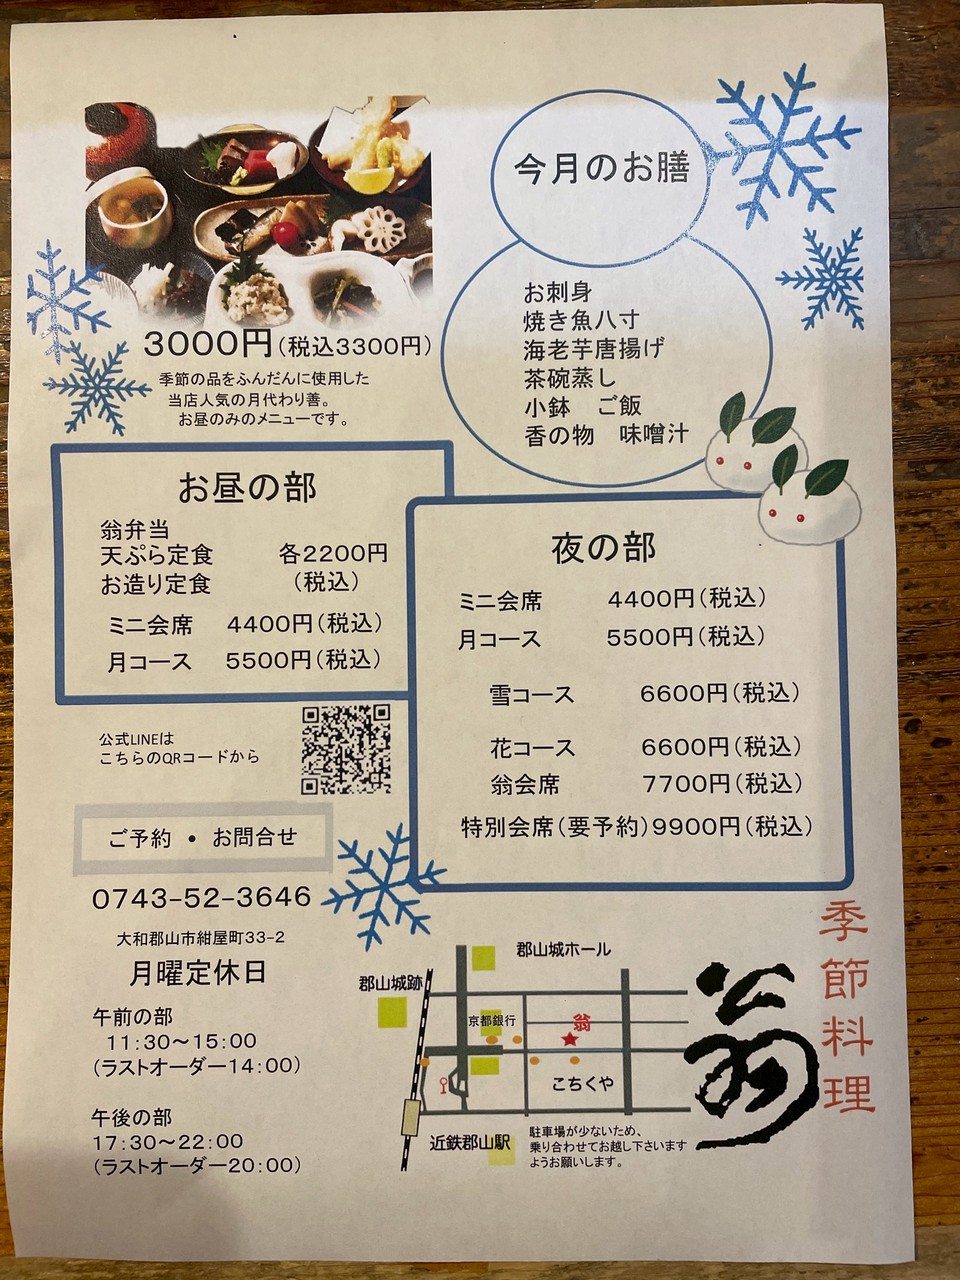 今月のお膳
お刺身
焼き魚八寸
海老芋唐揚げ
茶碗蒸し
小鉢　ご飯
香の物　味噌汁
3000円(税込3300円)
季節の品をふんだんに使用した
当店人気の月代わり善。
お昼のみのメニューです。
お昼の部
翁弁当
天ぷら定食　各2200円
お造り定食　(税込)
ミニ会席　4400円(税込)
月コース　5500円(税込)
夜の部
ミニ会席　4400円(税込)
月コース　5500円(税込)
雪コース　6600円(税込)
花コース　6600円(税込)
翁会席　7700円(税込)
特別会席(要予約)9900円(税込)
公式LINEは
こちらのQRコードから
ご予約 • お問合せ
0743-52-3646
大和郡山市紺屋町33-2
月曜定休日
午前の部
11:30〜15:00
(ラストオーダー14:00)
午後の部
17:30〜22:00
(ラストオーダー20:00)
郡山城ホール
郡山城跡
京都銀行
翁
こちくや
近鉄郡山駅
駐車場が少ないため、
乗り合わせてお越し下さいます
ようお願いします。
季節料理
翁